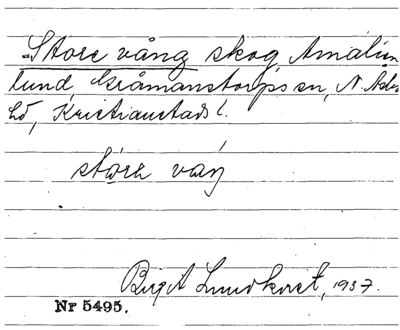 Store vång skog, Amalien
lund, Gråmanstorps sn, N. Åsbo
hd, Kristianstads l.
stóra váŋ
Birgit Lundkvist, 1937.
Nr 5495.